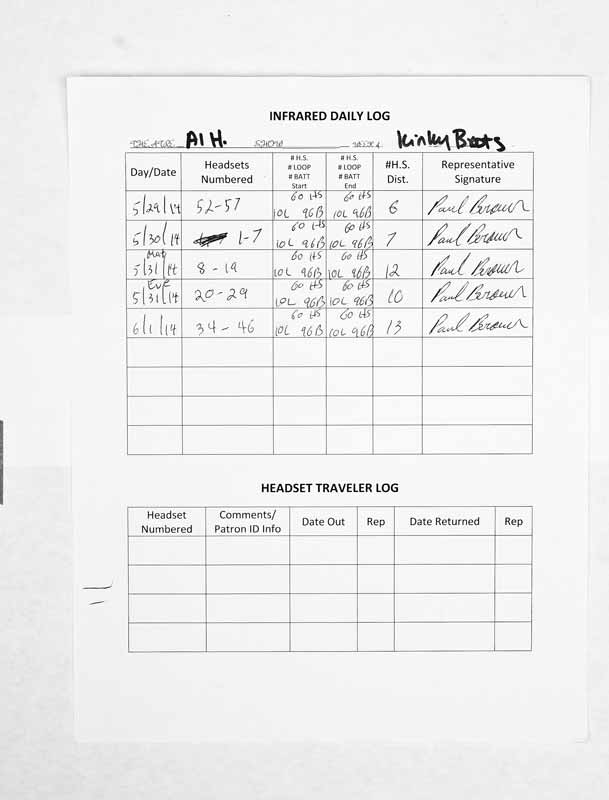 INFRARED DAILY LOG
THEATRE Al H. SHOW WEEK Kinky Boots
Day/Date Headsets Numbered # H.S. # LOOP # BATT Start # H.S. # LOOP # BATT End #H.S. Dist. Representative Signature
5/29/14 52-57 60 HS 10L 96B 60 HS 10L 96B 6 Paul Brower
5/30/14 1-7 60 HS 10L 96B 60 HS 10L 96B 7 Paul Brower
Mat 5/31/14 8-19 60 HS 10L 96B 60 HS 10L 96B 12 Paul Brower
Eve 5/31/14 20-29 60 HS 10L 96B 60 HS 10L 96B 10 Paul Brower
6/1/14 34-46 60 HS 10L 96B 60 HS 10L 96B 13 Paul Brower
HEADSET TRAVELER LOG
Headset Numbered Comments/ Patron ID Info Date Out Rep Date Returned Rep